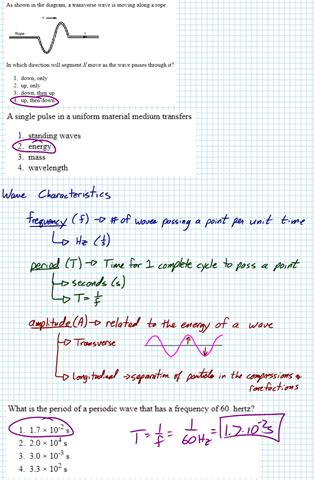 As shown in the diagram, a transverse wave is moving along a rope.
Rope
x
In which direction will segment X move as the wave passes through it?
1. down, only
2. up, only
3. down, then up
4. up, then down
A single pulse in a uniform material medium transfers
1. standing waves
2. energy
3. mass
4. wavelength
Wave Characteristics
frequency (f) → # of waves passing a point per unit time
↳ Hz (1/s)
period (T) → Time for 1 complete cycle to pass a point
↳ seconds (s)
↳ T = 1/f
amplitude (A) → related to the energy of a wave
↳ Transverse
↳ Longitudinal → separation of particle in the compressions & rarefactions
What is the period of a periodic wave that has a frequency of 60. hertz?
1. 1.7 × 10⁻² s
2. 2.0 × 10⁴ s
3. 3.0 × 10⁻³ s
4. 3.3 × 10² s
T = 1/f = 1/60Hz = 1.7·10⁻² s